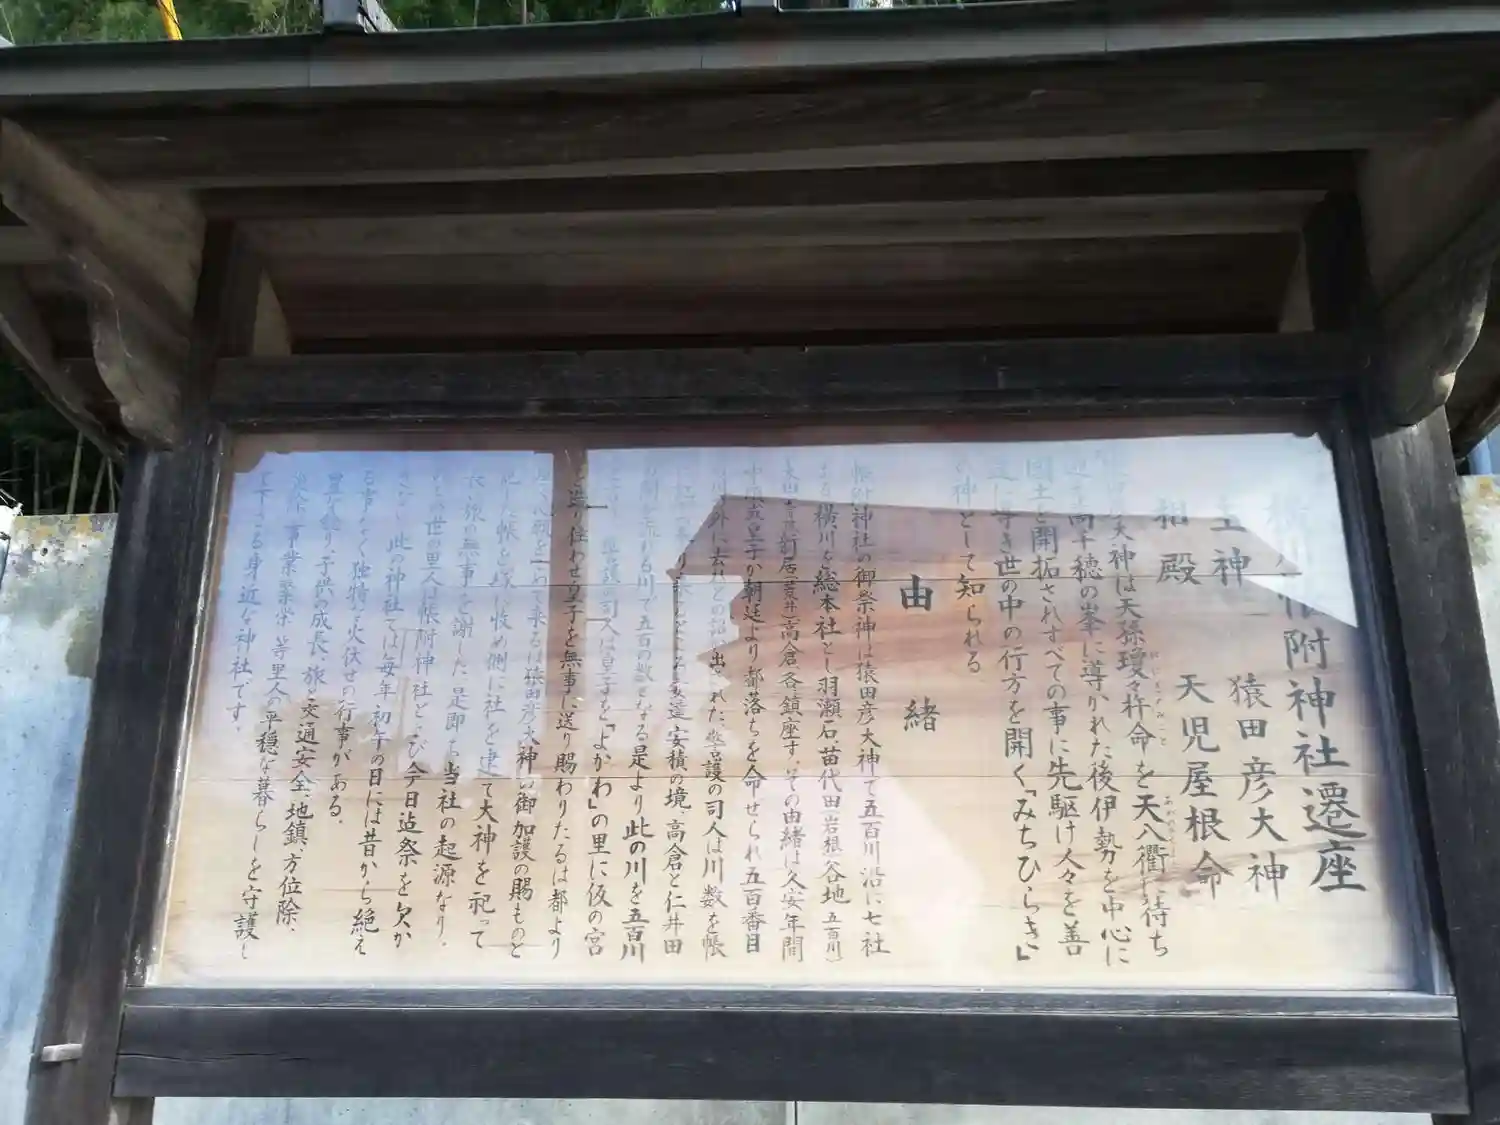 横川帳附神社遷座
主神 猿田彦大神
相殿 天児屋根命
大神は天孫瓊々杵命を天八衢に待ち
迎え高千穂の峯に導かれた後伊勢を中心に
国土を開拓されすべての事に先駆け人々を善
道に導き世の中の行方を開く「みちひらき」
の神として知られる
由緒
帳附神社の御祭神は猿田彦大神で五百川沿に七社
ある横川を総本社とし羽瀬石、苗代田、岩根、谷地(五百川)
太田、青藤、新居(荒井)高倉、各鎮座す、その由緒は久安年間
中頃某皇子が朝廷より都落ちを命せられ五百番目
の川の外に去れとの詔が出された、警護の司人は川数を帳
安達安積の境、高倉と仁井田
の間を流れる川で五百の数となる是より此の川を五百川
警護の司人は皇子を「よかわ」の里に仮の宮
を造り住わせ皇子を無事に送り賜わりたるは都より
心願を 来る猿田彦大神の御加護の賜ものと
した帳を に收め側に社を建て大神を祀って
旅の無事を謝した、是即ち当社の起源なり、
世の里人は帳附神社とよび今日迄祭を欠か
さない、此の神社では毎年、初午の日には昔から絶え
る事なく独特な火伏せの行事がある。
子供の成長、旅と交通安全、地鎮、方位除、
事業繁栄、等里人の平穏な暮らしを守護し
て下さる身近な神社です。